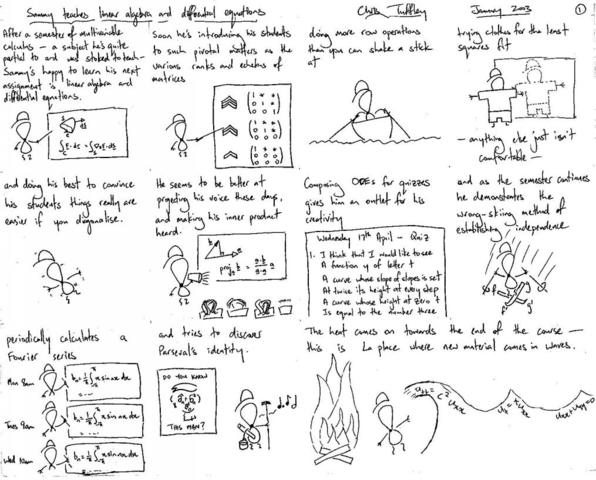 Sammy teaches linear algebra and differential equations
Chris Tuffley
January 2003
1
After a semester of multivariable
calculus – a subject he's quite
partial to and was stoked to teach –
Sammy's happy to learn his next
assignment is linear algebra and
differential equations.
Soon he's introducing his students
to such pivotal matters as the
various ranks and echelons of
matrices
doing more row operations
than you can shake a stick
at
trying clothes for the least
squares fit
– anything else just isn't
comfortable –
and doing his best to convince
his students things really are
easier if you diagonalise.
He seems to be better at
projecting his voice these days,
and making his inner product
heard.
Composing ODEs for quizzes
gives him an outlet for his
creativity
Wednesday 17th April – Quiz
1. I think that I would like to see
A function y of letter t
A curve whose slope of slopes is set
At twice its height at every step
A curve whose height at zero t
Is equal to the number three
and as the semester continues
he demonstrates the
wrong-skiing method of
establishing independence
periodically calculates a
Fourier series
Mon 8am
Tues 9am
Wed 10am
and tries to discover
Parseval's identity.
DO YOU KNOW
THIS MAN?
The heat comes on towards the end of the course –
this is La place where new material comes in waves.
u_tt = c² u_xx
u_xx + u_yy = 0